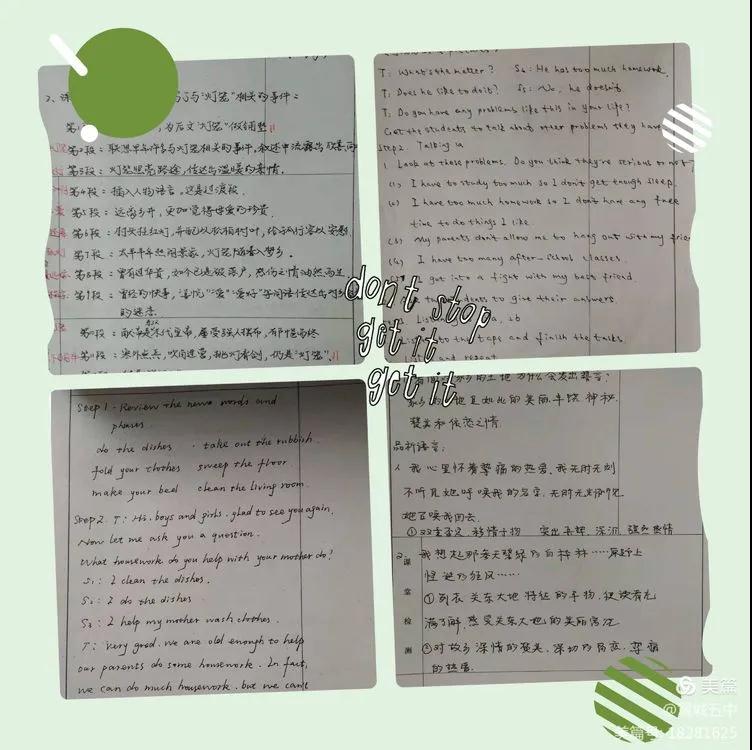 2、
与"灯笼"相关的事件:
为后文"灯笼"做铺垫
第2段:联想早年许多与灯笼相关的事件,叙述中流露出欣喜向
第3段:灯笼照亮路途,传达出温暖的亲情。
第4段:插入人物语言,这是过渡段
第5段:远离乡井,更加觉得母爱的珍贵
第6段:村头挂红灯,并配以
给予行客以安慰
第7段:太平年年热闹景象,灯笼随着入梦乡。
第8段:曾有过华贵,如今已是破落户,感伤之情油然而生
第9段:曾经的快事,
等词语传达出对
的迷恋
第10段:
屡受强人摆布,郁悒而终
第11段:塞外点兵,吹角连营,挑灯看剑,仍是"灯笼"。
T: What's the matter? Ss: He has too much homework.
T: Does he like to do it? Ss: No, he doesn't
T: Do you have any problems like this in your life?
Get the students to talk about other problems they have
Step2. Talking 1a
1. Look at these problems. Do you think they're serious or not?
(1) I have to study too much so I don't get enough sleep.
(2) I have too much homework so I don't have any free
time to do things I like.
(3) My parents don't allow me to hang out with my frie
(4) I have too many after-school classes.
I got into a fight with my best friend.
students to give their answers.
Listening
2b
to the tapes and finish the tasks.
and repeat
don't stop
get it
get it
Step 1. Review the news words and
phrases
do the dishes . take out the rubbish
fold your clothes sweep the floor
make your bed clean the living room.
Step2. T: Hi. boys and girls. glad to see you again.
Now let me ask you a question.
What housework do you help with your mother do?
S1: I clean the dishes.
S2: I do the dishes
S3: I help my mother wash clothes.
T: very good. we are old enough to help
our parents do some housework. In fact,
we can do much housework. but we can't
的土地为什么会发出誓言?
地是如此的美丽、丰饶、神秘.
赞美和依恋之情.
品析语言:
1. 我心里怀着挚痛的热爱,我无时无刻
不听见她呼唤我的名字,无时无刻
她召唤我回去.
①双重否定
突出
深沉、强烈感情
2. 我想起那参天碧绿的白桦林……原野上
怪诞的狂风……
①列示关东大地特征的事物,使读者充
满了解,感受关东大地的美丽富饶
②对故乡深情的赞美、深切的眷恋、挚痛
的热爱.
课
堂
检
测
美篇
@
城五中
美篇号:18281625